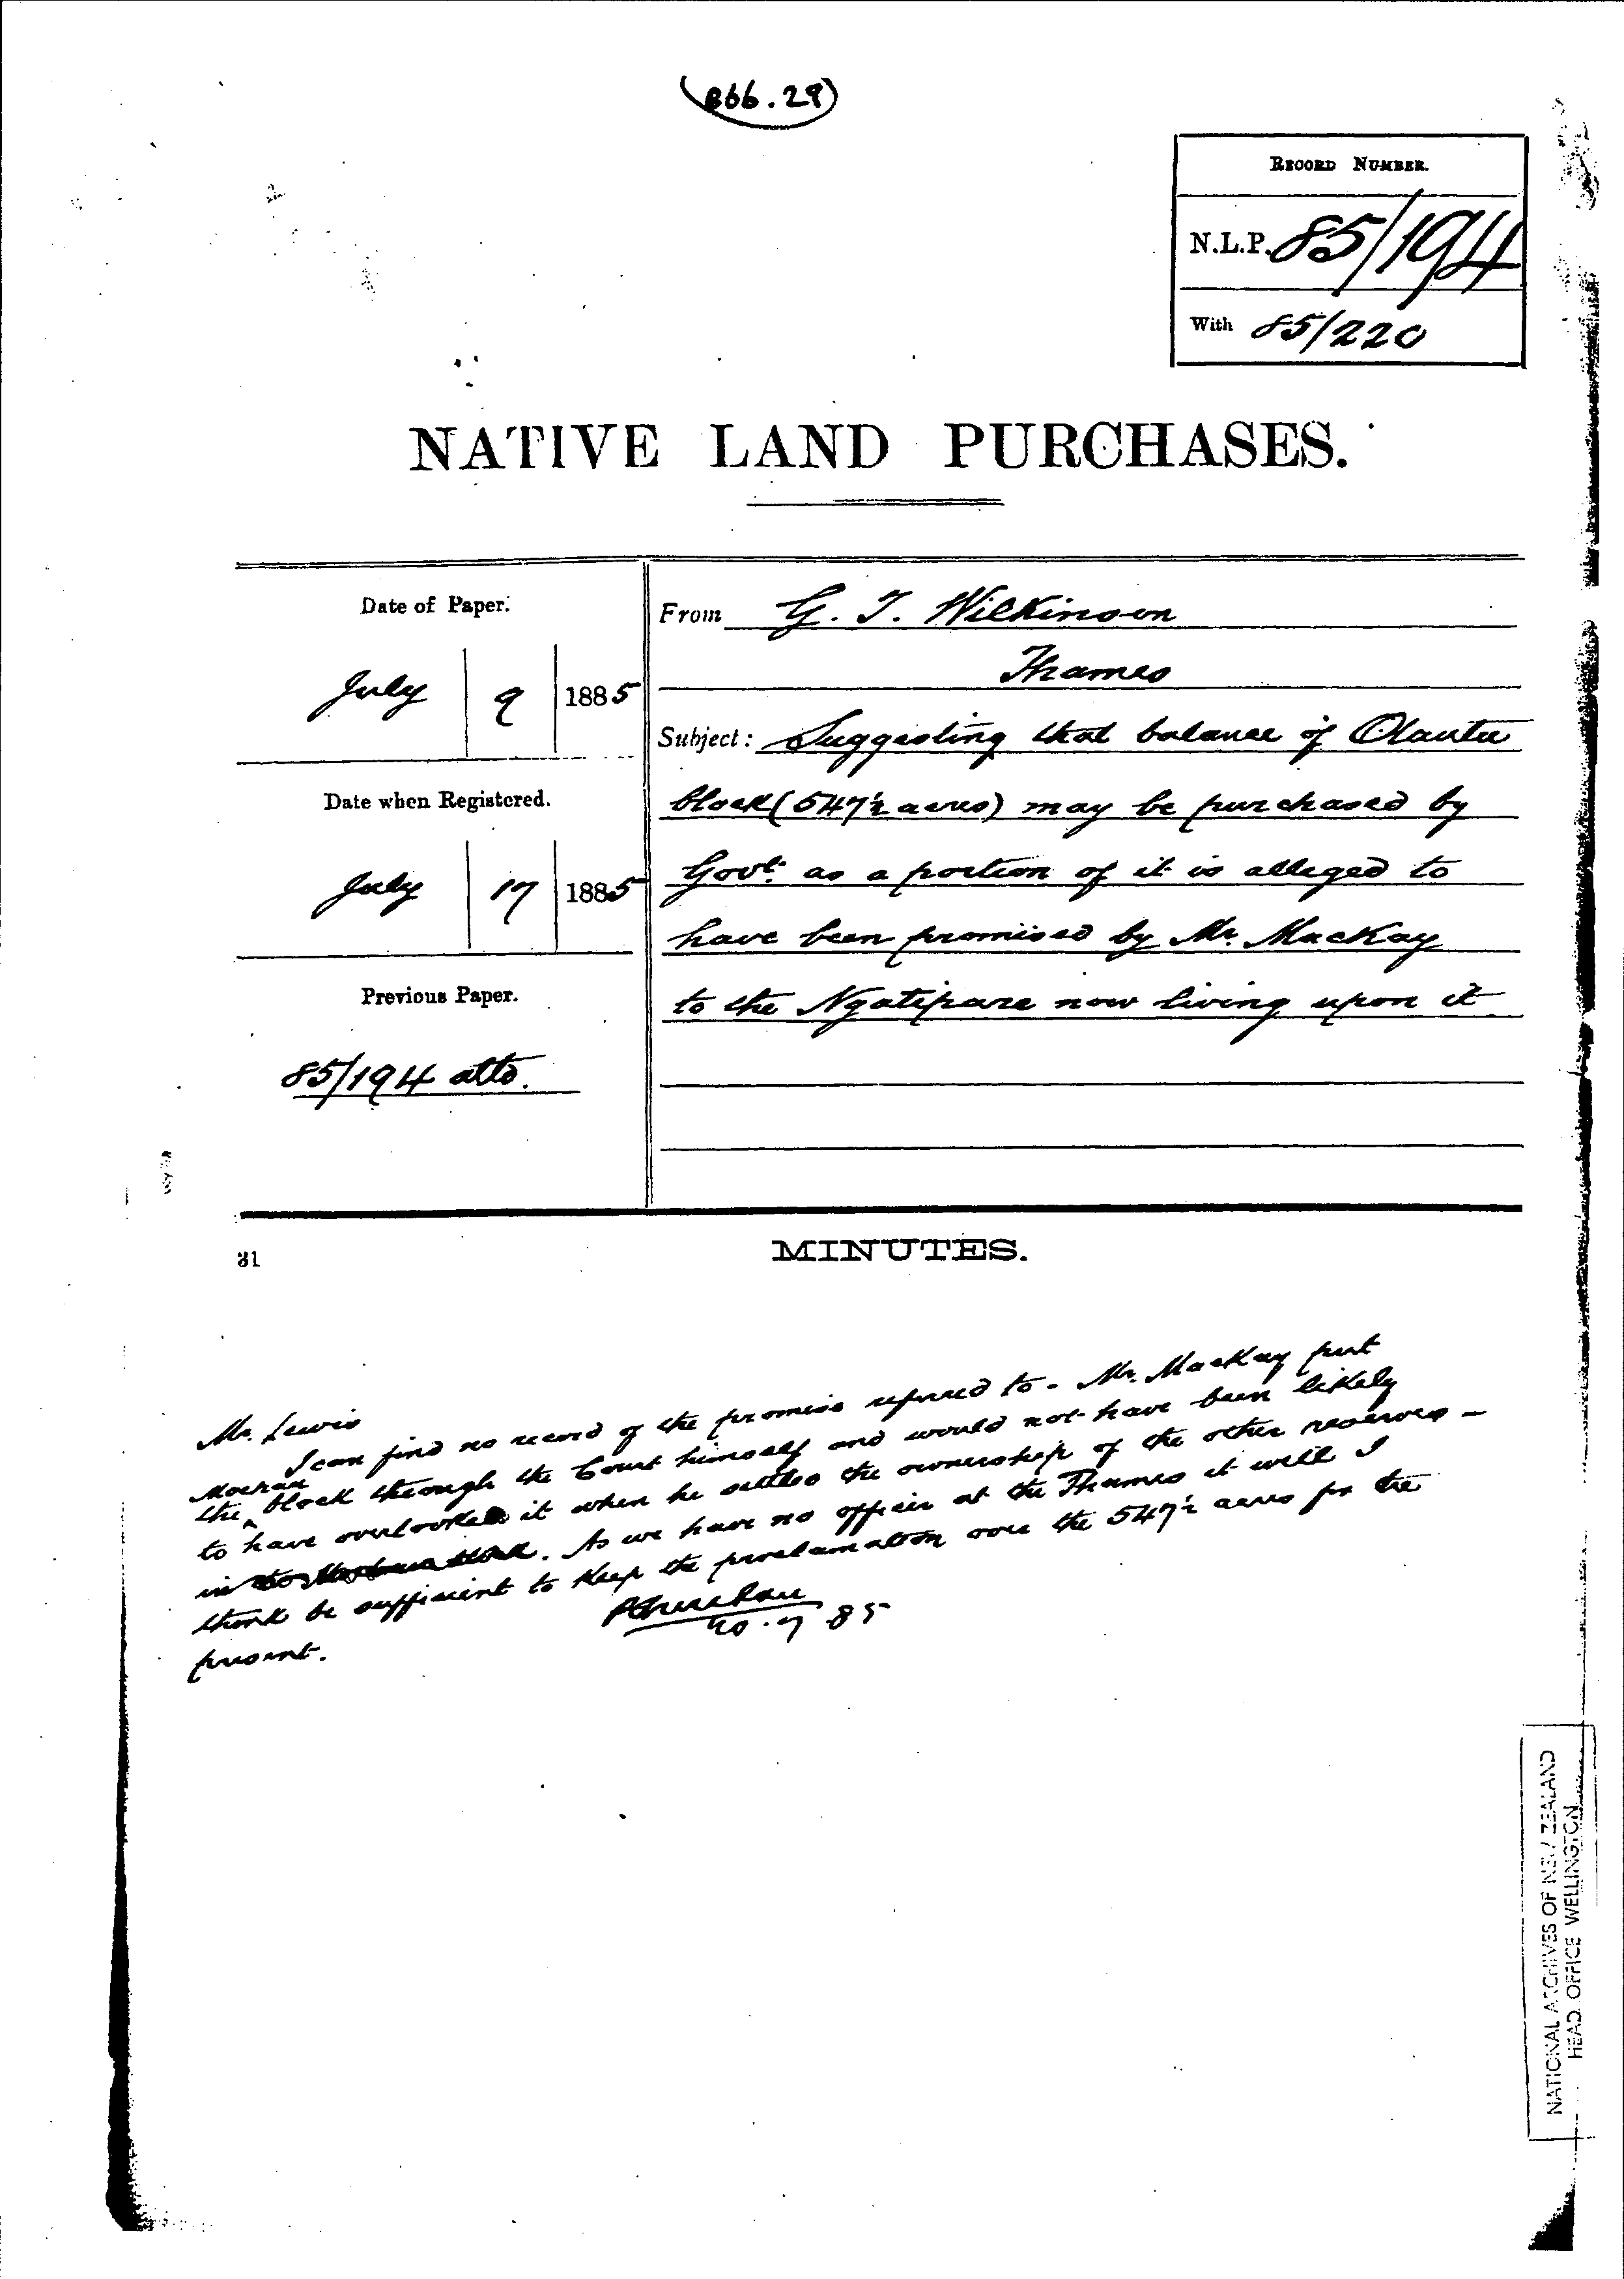 (866.29)
RECORD NUMBER.
N.L.P. 85/194
With 85/220
NATIVE LAND PURCHASES.
Date of Paper.
July 9 1885
Date when Registered.
July 17 1885
Previous Paper.
85/194 atto.
From G. T. Wilkinson
Thames
Subject: Suggesting that balance of Otautu
block (547½ acres) may be purchased by
Govt. as a portion of it is alleged to
have been promised by Mr. MacKay
to the Ngatipare now living upon it
31
MINUTES.
Mr. Lewis
I can find no record of the promise referred to - Mr. MacKay put
the Moehau block through the Court himself and would not have been likely
to have overlooked it when he settled the ownership of the other reserves -
in . As we have no officer at the Thames it will I
think be sufficient to keep the proclamation over the 547½ acres for the
present.
20.7.85
NATIONAL ARCHIVES OF NEW ZEALAND
HEAD OFFICE WELLINGTON